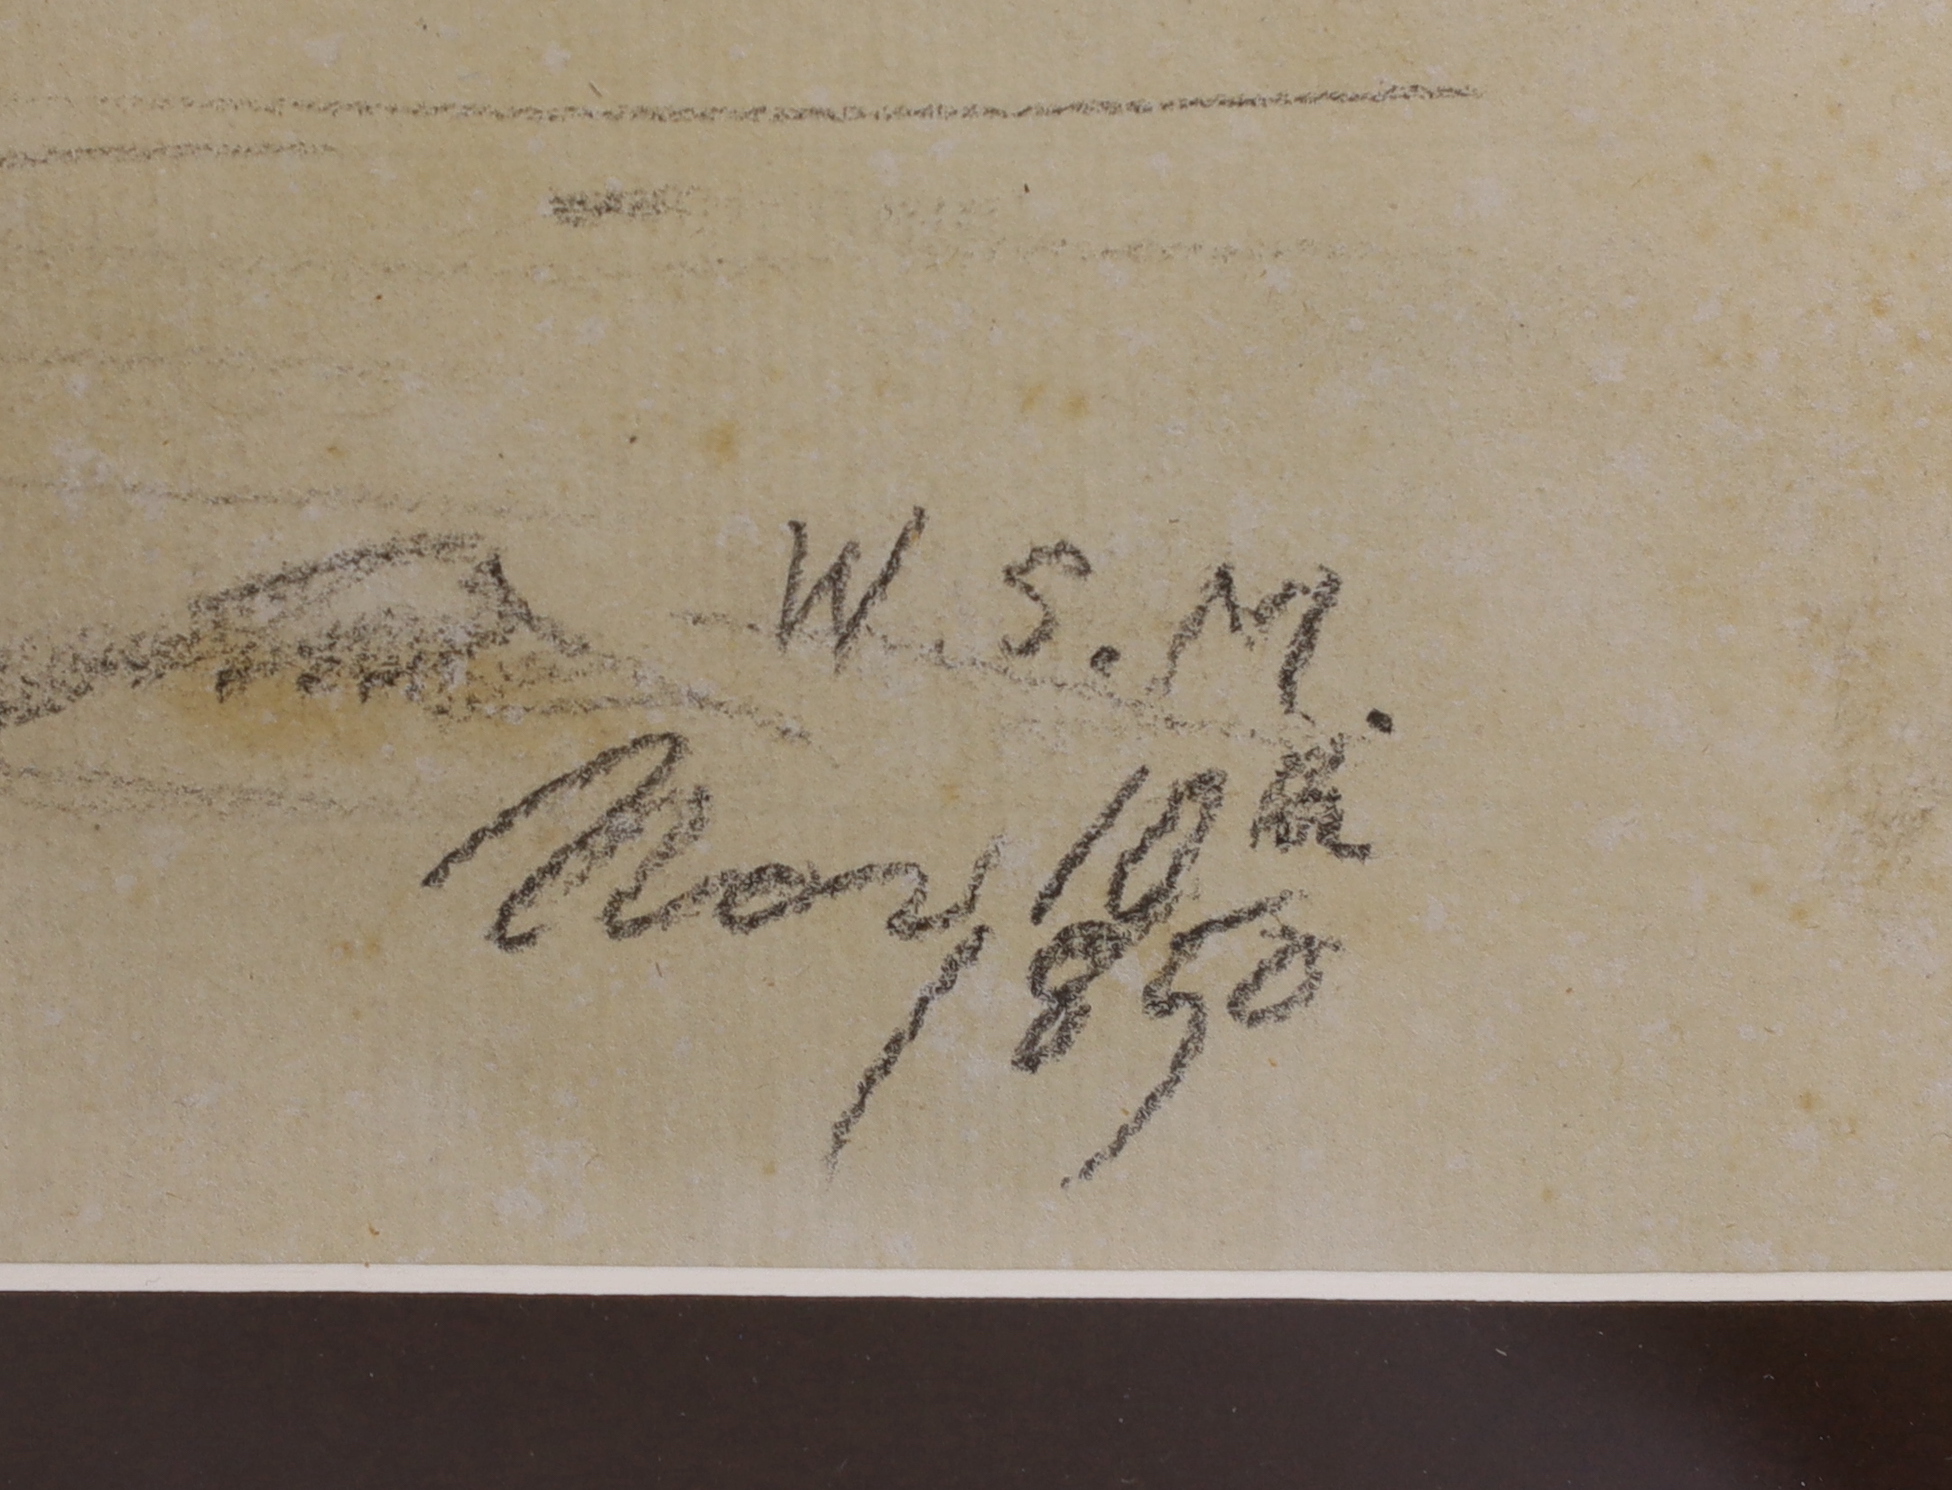 W. S. M.
Nov 10th
1850